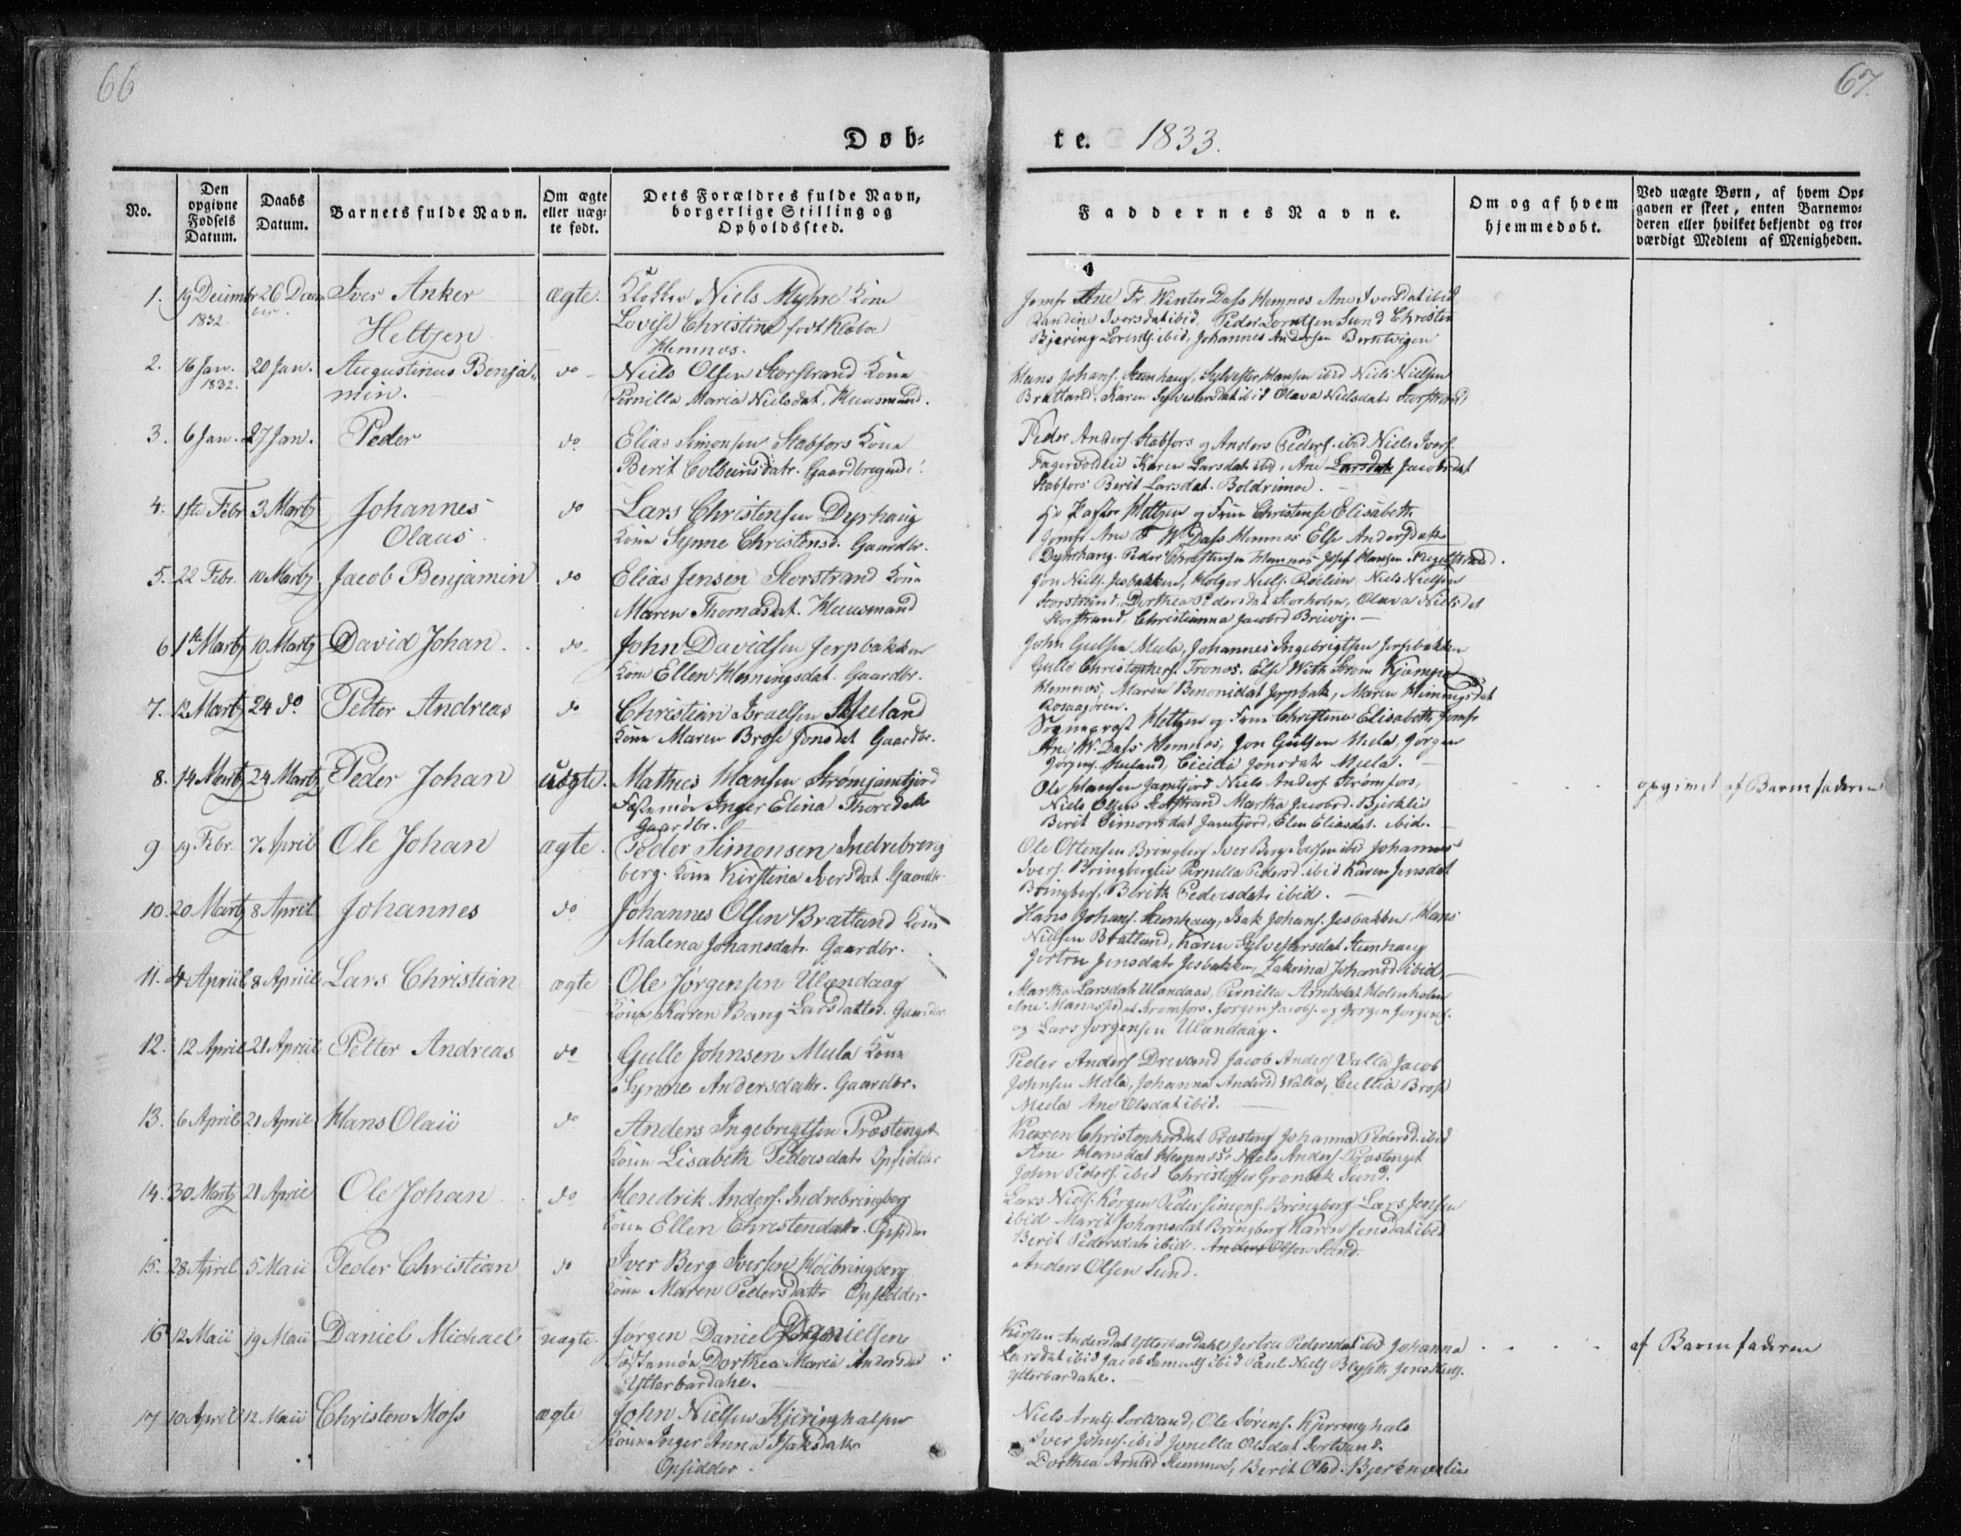 66
67.
Døb-
te. 1833.
No.
Den opgivne Fødsels Datum.
Daabs Datum.
Barnets fulde Navn.
Om ægte eller uægte født.
Dets Forældres fulde Navn, borgerlige Stilling og Opholdssted.
Faddernes Navne.
Om og af hvem hjemmedøbt.
Ved uægte Børn, af hvem Opgaven er skeet, enten Barnemoderen eller hvilket bekjendt og troværdigt Medlem af Menigheden.
1. 19 Decimbr 26 Decm Iver Anker ægte. Klokker Niels Myhre Kone
1832. Heltzen Lovise Christine født Klæboe
Hemnes.
Jomfr Ane Fr. Winter Dass Hemnes Ane Iversdat ibid
Randine Iversdat ibid, Peder Lorntsen Sund Christen
Bjering Lorents. ibid, Johannes Andersen
2. 16 Jan. 20 Jan. Augustinus Benja- do Niels Olsen Storstrand Kone
1832. min. Pernilla Maria Nielsdat, Huusmand.
Hans Johans. Steenhaug, Sylvester Hansen ibid Niels Nielsen
Bratland, Karen Sylvestersdat ibid Olava Nielsdatr Storstrand
3. 6 Jan. 27 Jan. Peder do Elias Simonsen Stabfors Kone
Berit Colbeinsdatr. Gaardbrugende.
Peder Anders. Stabfors og Anders Peders. ibid Niels Ivers.
Fagervoldlii Karen Larsdat ibid, Ane Larsdatr Jacobsdat
Stabfors Berit Larsdat. Boldrimoe.
4. 1ste Febr 3 Martz Johannes do Lars Christensen Dyrhaug
Olaus. Kone Synne Christensd. Gaardbr.
Hr Pastor Heltzen og Frue Christense Elisabeth
Jomfr Ane F W Dass Hemnes Else Andersdatr
Dyrhaug. Peder Christensen Hemnes Josef Hansen
5. 22 Febr. 10 Martz Jacob Benjamin do Elias Jensen Storstrand Kone
Maren Thomasdat. Huusmand
Jon Niels. Jesbakken, Holger Niels. Røelien, Niels Nielsen
Storstrand, Dorthea Pedersdat Storholm, Olava Nielsdat
Storstrand, Christianna Jacobsd Brevig.
6 1ste Martz 10 Martz David Johan. do John Davidsen Jerpbakken
Kone Ellen Henningsdat. Gaardbr.
John Gulsen Mula, Johannes Ingebrigtsen Jerpbakken
Gulle Christophers. Tronos. Else With
Hemnes, Maren Benonidat Jerpbak, Maren Henningsdat
7. 12 Martz 24 do. Petter Andreas do Christian Israelsen Meeland
Kone Maren Brose Jonsdat Gaardbr.
Sogneprest Heltzen og Frue Christense Elisabeth, Jomfr
Ane W. Dass Hemnes, Jon Gulsen Mula, Jørgen
Jørgens. Meeland, Cicilia Jonsdatr Mula.
8. 14 Martz 24 Martz Peder Johan uægte. Mathies Hansen Strømjamtjord
Fæstemøe Inger Elina Thoresdatr
Gaardbr.
Ole Hansen Jamtjord Niels Anders. Strømfors,
Niels Olsen Storstrand Martha Jacobsd. Bjerklii
Berit Simonsdat Jamtjord, Elen Eliasdat. ibid.
opgivet af Barnefaderen
9 19 Febr. 7 April Ole Johan ægte. Peder Simonsen Indrebring
berg. Kone Kirstina Iversdat Gaardbr.
Ole Ottensen Bringbers Iver Berg Iversen ibid Johannes
Ivers. Bringberglii Pernilla Pedersd. ibid Karen Jensdat
Bringbers. Berith Pedersdatr ibid.
10. 20 Martz 8 April Johannes do Johannes Olsen Bratland Kone
Malena Johansdatr. Gaardbr.
Hans Johans. Steenhaug, Isak Johans. Jesbakken, Hans
Nielsen Bratland, Karen Sylvestersdat Steenhaug
Jertru Jensdatr Jesbakken, Zakrina Johansd. ibid
11. 4 Apriil 8 Apriil Lars Christian ægte Ole Jørgensen Ulændaag
Kone Karen Bang Larsdatter. Gaardbr
Martha Larsdatr Ulandaae, Pernilla Arntsdat Holenholm
Strømfors. Jørgen Jacobs. og Jørgen Jørgens.
og Lars Jørgensen Ulandaag.
12. 12 April 21 Apriil Petter Andreas do Gulle Johnsen Mula Kone
Synne Andersdatr. Gaardbr.
Peder Anders. Drevand Jacob Anders Valla Jacob
Johnsen Mula, Johanna Andersd Walla, Cicilia Brose
Mula Ane Olsdat ibid.
13. 6 April 21 April Hans Olaii do Anders Ingebregtsen Præstenget
Kone Lisabeth Pedersdatr Opsidder
Karen Christophersdat Præsteng Johanna Pedersd. ibid
Ane Hansdat Hemnes Niels Anders. Præstenget
John Peders. ibid Christoffer Grønbek Sund.
14. 30. Martz 21 April Ole Johan do Hendrik Anders. Indrebringberg
Kone Ellen Christendatr. Opsidder
Lars Niels. Korgen Peder Simons. Bringberg Lars Jensen
ibid Marit Johansdat Bringberg Karen Jensdat ibid
Berit Pedersdatr ibid. Anders Olsen Sund
15. 28 April 5 Maii Peder Christian do Iver Berg Iversen Høibringberg
Kone Maren Pedersdatr Opsidder
Anders Olsen Sund.
16 12 Maii 19 Maii Daniel Michael uægte. Jørgen Daniel Danielsen
Fæstemøe Dorthea Maria Andersdat
Ytterbardahl.
Kirsten Andersdat Ytterbardahl Jertru Pedersdat ibid Johanna
Larsdat ibid Jacob Samuels ibid Paul Niels Jens Niels.
Ytterbardahl.
af Barnefaderen
17 10 April 12 Maii Christen Moss ægte John Nielsen Kjeringhalsen
Kone Inger Anna Isaksdatr
Opsidder.
Niels Arnts. Sortvand, Ole Sørens. Kjerringhals
Iver Johns. ibid Jonella Olsdat Sortvand.
Dorthea Arntsd Hemnes, Berit Olsd.